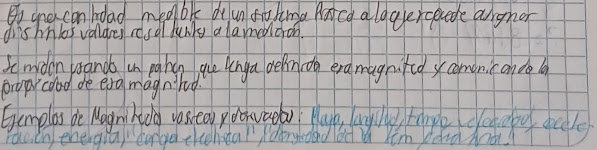 Es una cantidad medible de un sistema físico a la que se puede asignar
distintos valores resultantes a la medición.
Se miden usando un patrón que tenga definida esa magnitud y comunicando la
propiedad de esa magnitud.
Ejemplos de Magnitudes básicas y derivadas: Masa, longitud, tiempo, velocidad, acele-
ración, energía, carga eléctrica, densidad de la